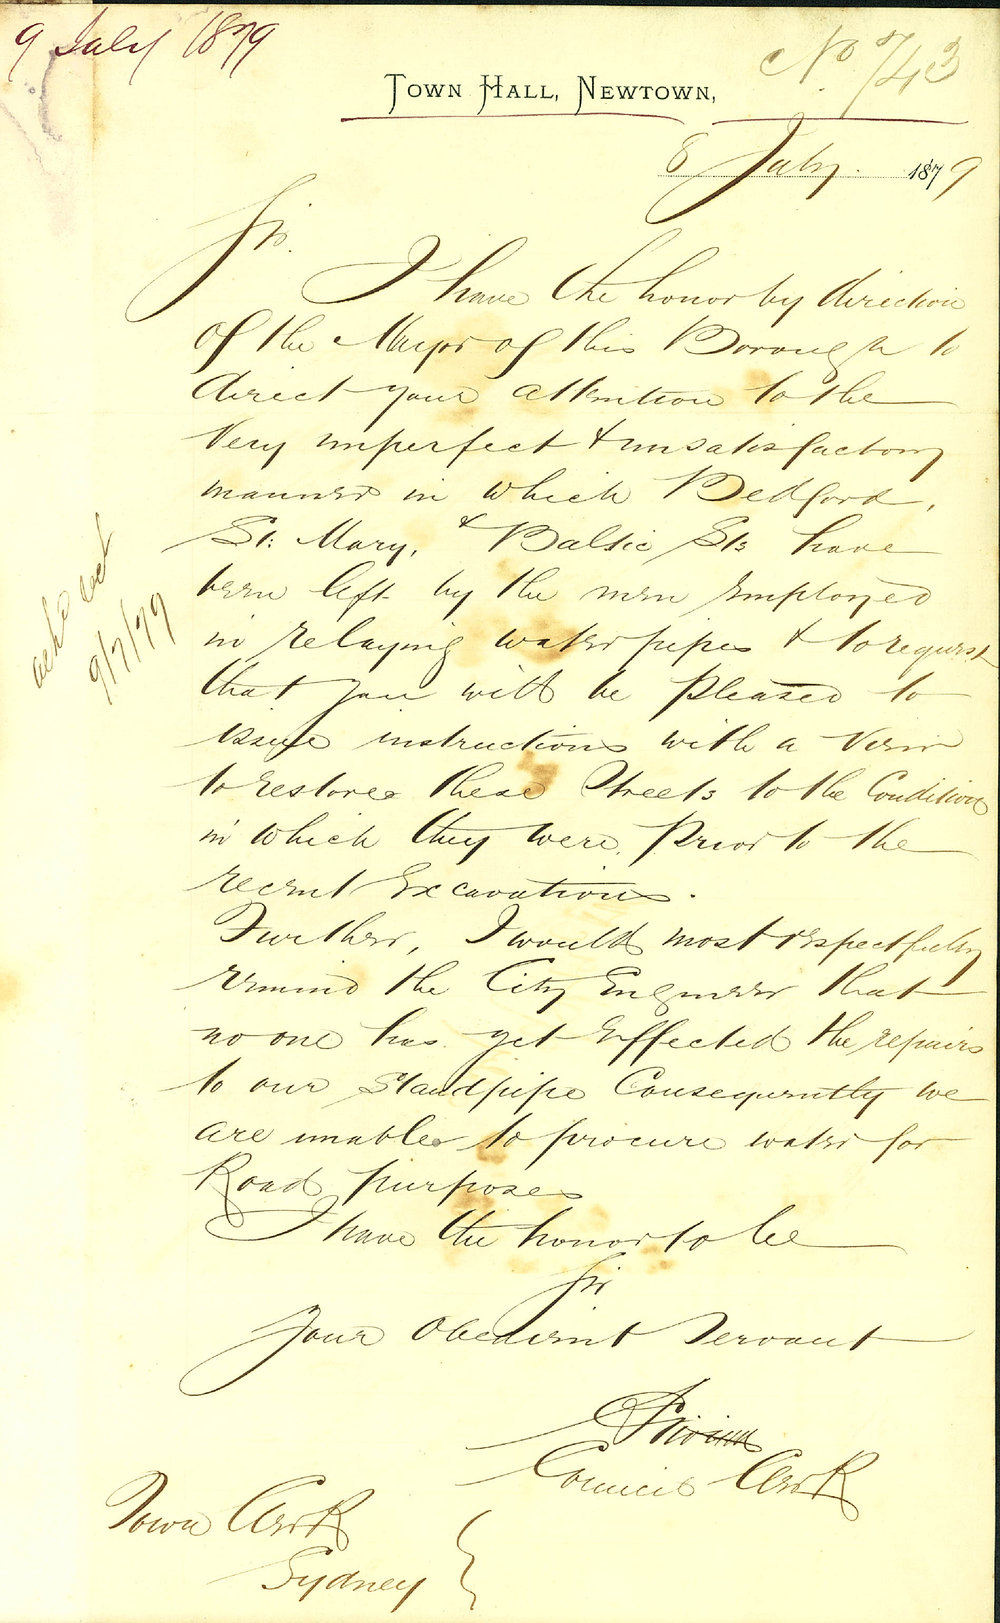 9 July 1879
No. 743
TOWN HALL, NEWTOWN,
8 July. 1879
Sir.
I have the honor by direction
of the Mayor of this Borough to
direct your attention to the
very imperfect & unsatisfactory
manner in which Bedford,
St: Mary, & Baltic Sts have
been left by the men employed
in relaying water pipes & to request
that you will be pleased to
issue instructions with a view
to restore these Streets to the Condition
in which they were, Prior to the
recent Excavations.
Further, I would most respectfully
remind the City Engineer that
no one has yet Effected the repairs
to our Standpipe Consequently we
are unable to procure water for
Road purposes
I have the honor to be
Sir
Your Obedient Servant
Council Clerk
Town Clerk
Sydney
9/7/79